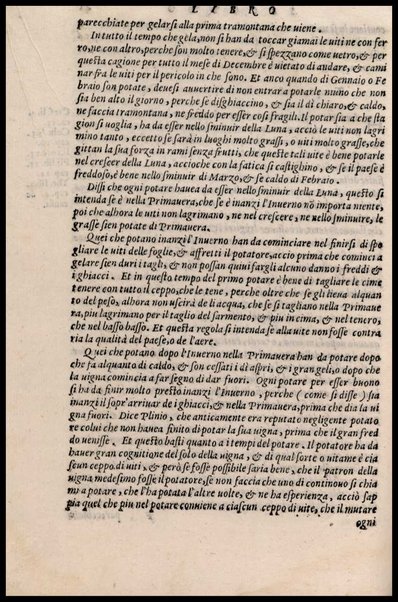 LIBRO
parecchiate per gelarsi alla prima tramontana che viene.
In tutto il tempo che gela, non si han da toccar giamai le viti ne con fer
ro, ne con altro, perche son molto tenere, & si spezzano come vetro, & per
questa cagione per tutto il mese di Decembre è vietato di andare, & cami
nar fra le viti per il pericolo in che sono. Et anco quando di Gennaio o Fe
braio son potate, devesi avvertire di non entrar a potarle nuno che non
sia ben alto il giorno, perche se disghiaccino, & sia il dì chiaro, & caldo,
ne faccia tramontana, ne freddo per esser così fragili. Il potar sia a che sta
gion si voglia, ha da esser nello sminuir della Luna, acciò le viti non lagri
mino tanto, eccetto se sarà in luoghi molto grassi, o viti molto grasse, che
gittan la sua forza in rami senza frutti, che queste tali viti è bene potarle
nel crescer della Luna, accioche con la fatica si castighino, & se il paese è
freddoso, è bene nello sminuir di Marzo, & se caldo di Febraio.
Dissi che ogni potare havea da esser nello sminuir della Luna, questo si
intenda se è nella Primavera, che se è inanzi l'Inverno nõ importa niente,
poi che alhora le viti non lagrimano, ne nel crescere, ne nello sminuire, le
grasse sien potate di Primavera.
Quei che potano inanzi l'Inverno han da cominciare nel finirsi di spo
gliare le viti delle foglie, & affretti il potatore, accio prima che cominci a
gelare sien duri i tagli, & non possan quivi fargli alcuno danno i freddi &
i ghiacci. Et in questo tempo del primo potare è bene di tagliare le cime
tenere con tutto il ceppo, che le tene, perche oltre che se gli lieva alquan
to del peso, alhora non uscirà de li acqua, che se si tagliano nella Primave
ra, piu lagrimano per il taglio del sarmento, & piu in cima, & nel tenero,
che nel basso basso. Et questa regola si intenda se alla vite non fosse contra
ria la qualità del paese, o de l'aere.
Quei che potano dopo l'Inverno nella Primavera han da potare dopo
che fa alquanto di caldo, & son cessati i dì aspri, & i gran geli, o dopo che
la vigna comincia a far segno di dar fuori. Ogni potare per esser buono
si ha da finir molto presto inanzi l'Inverno, perche (come si disse) sia
inanzi il sopr'arrivar de i ghiacci, & nella Primavera, prima che dia la vi
gna fuori. Dice Plinio, che anticamente era reputato negligente potato
re colui che non havea finito di potar la sua vigna, prima che il gran fred
do venisse. Et questo basti quanto a i tempi del potare. Il potatore ha da
haver gran cognitione del solo della vigna, & di qual sorte o vitane è cia
scun ceppo di viti, & però se fosse possibile saria bene, che il patron della
vigna medesimo fosse il potatore, se non faccia che uno di continouo si chia
mi a potare, che l'ha potata l'altre volte, & ne ha esperienza, acciò sap
pia quel che piu nel potare conviene a ciascun ceppo di vite, che il mutare
ogni